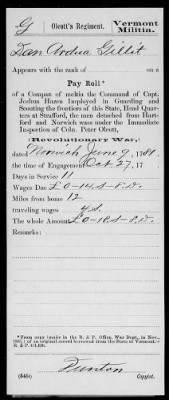 G | Olcott's Regiment. | Vermont Militia.
Dan Ardua Gillit
Appears with the rank of on a
Pay Roll*
of a Compan of melitia the Command of Capt.
Joshua Hazen Imployed in Guarding and
Scouting the frontiers of this State, Head Quar-
ters at Strafford, the men detached from Hart-
ford and Norwich wase under the Immediate
Inspection of Colo. Peter Olcott,
(Revolutionary War,)
dated Norwich June 9, 1781.
the time of Engagement Oct 27, 17
Days in Service 11
Wages Due £0-14s-8.D.
Miles from home 12
traveling wages 4s.
The whole Amount £0-18s-8.D.
Remarks:
*From invoice in the R. & P. Office, War Dept., in Nov.,
of an original record borrowed from the State of Vermont.—
R. & P.
Funton
(646c) Copyist.